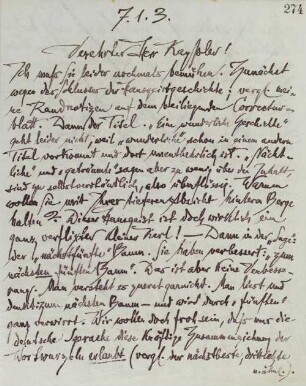 274
7. 1. 3.
Verehrter Herr Kayssler!
Ich muß Sie leider nochmals bemühen. Zunächst
wegen des Schlusses der Tanzgeistgeschichte: vergl. meine
Randnotizen auf dem beiliegenden Correctur-
blatt. Dann der Titel. „Eine wunderliche Geschichte“
geht leider nicht, weil „wunderlich“ schon in einem andern
Titel vorkommt und dort unentbehrlich ist. „Nächt-
liche“ und „geträumte“ sagen aber zu wenig über den Inhalt,
sind zu selbstverständlich, also überflüssig. Warum
wollen Sie mit Ihrer tieferen Absicht hinterm Berge
halten?? Dieser Tanzgeist ist doch wirklich ein
ganz verflixter kleiner Kerl! — Dann in der
der „nächstfünfte“ Baum. Sie haben verbessert: „zum
nächsten fünften Baum“. Das ist aber keine Verbesse-
rung. Man versteht es zuerst garnicht. Man liest und
denkt: zum nächsten Baum — und wird durch „fünften“
ganz verwirrt. Wir wollen doch froh sein, daß uns die
deutsche Sprache diese kräftige Zusammenziehung der
Wortwurzeln erlaubt (vergl. der nächstbeste, drittletzte
u. ähnl.).